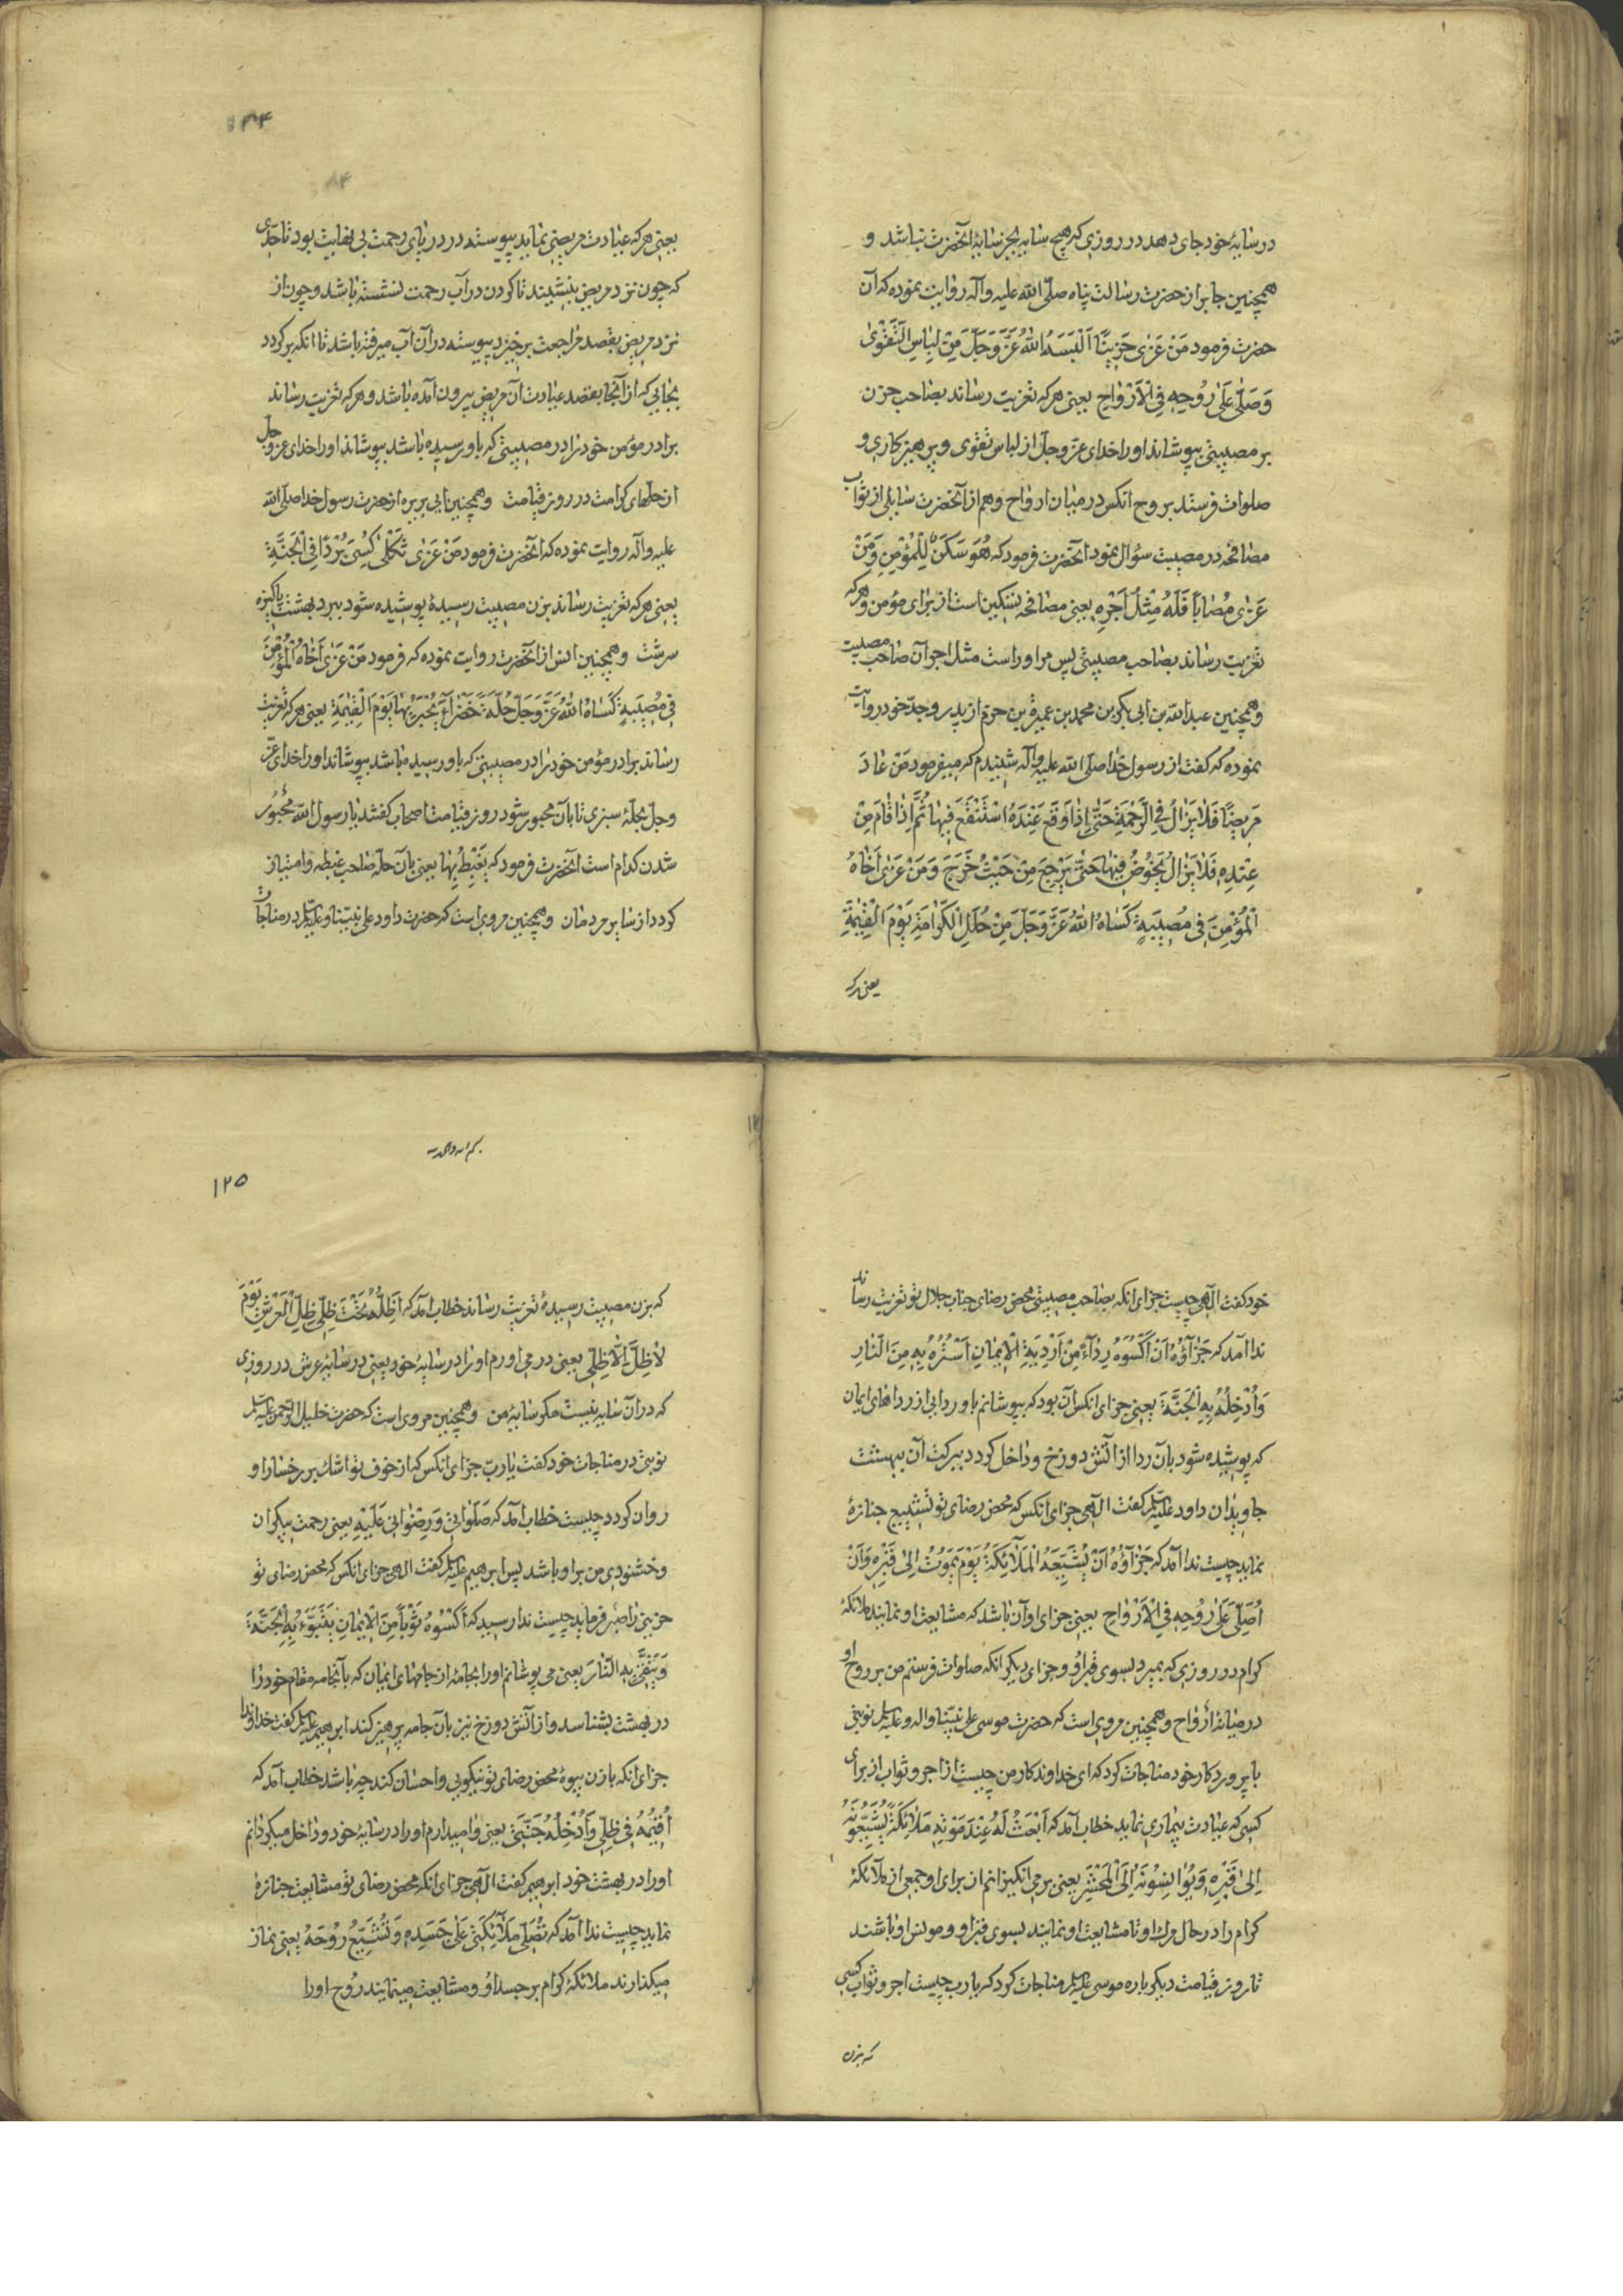 در سایهٔ خود جای دهد در روزی که هیچ سایه بجز سایهٔ آنحضرت نباشد و
همچنین جابر از حضرت رسالت پناه صلّی الله علیه وآله روایت نموده که آن
حضرت فرمود مَنْ عَزّیٰ حَزینًا اَلْبَسَهُ اللهُ عَزَّوَجَلَّ مِنْ لِباسِ التَّقْویٰ
وَصَلّیٰ عَلیٰ رُوحِهِ فِی الْاَرْواحِ یعنی هرکه تعزیت رساند بصاحب حزن
بر مصیبتی بپوشاند او را خدای عزّ وجلّ از لباس تقوی و پرهیزکاری و
صلوات فرستد بروح آنکس در میان ارواح وهم از آنحضرت سایلی از ثواب
مصافحه در مصیبت سؤال نمود آنحضرت فرمود که هُوَ سَکَنٌ لِلْمُؤْمِنِ وَمَنْ
عَزّیٰ مُصاباً فَلَهُ مِثْلُ اَجْرِهِ یعنی مصافحه تسکین است از برای مؤمن وهرکه
تعزیت رساند بصاحب مصیبتی پس مر او راست مثل اجر آن صاحب مصیبت
وهمچنین عبدالله بن ابی بکر بن محمد بن عمیرة بن حزم از پدر وجدّ خود روایت
نموده که گفت از رسول خدا صلّی الله علیه وآله شنیدم که میفرمود مَنْ عادَ
مَریضًا فَلا یَزالُ فِی الرَّحْمَةِ حَتّیٰ اِذا وَقَعَ عِنْدَهُ اسْتَنْقَعَ فیها ثُمَّ اِذا قامَ مِنْ
عِنْدِهِ فَلا یَزالُ یَخُوضُ فیها حَتّیٰ یَرْجِعَ مِنْ حَیْثُ خَرَجَ وَمَنْ عَزّیٰ اَخاهُ
الْمُؤْمِنَ فی مُصیبَةٍ کَساهُ اللهُ عَزَّوَجَلَّ مِنْ حُلَلِ الْکَرامَةِ یَوْمَ الْقِیٰمَةِ
یعنی هرکه
یعنی هرکه عیادت مریضی نماید پیوسته در دریای رحمت بی نهایت بود تا حدّی
که چون نزد مریض بنشیند تا کردن در آب رحمت نشسته باشد وچون از
نزد مریض بقصد مراجعت برخیزد پیوسته در آن آب میرفته باشد تا آنکه برکردد
بجایی که از آنجا بقصد عیادت آن مریض بیرون آمده باشد وهرکه تعزیت رساند
برادر مؤمن خود را در مصیبتی که باو رسیده باشد بپوشاند او را خدای عز وجل
از حلّهای کرامت در روز قیامت وهمچنین ابی بریره از حضرت رسول خدا صلی الله
علیه وآله روایت نموده که آنحضرت فرمود مَنْ عَزّیٰ ثَکْلیٰ کُسِیَ بُرْدًا فِی الْجَنَّةِ
یعنی هرکه تعزیت رساند بزن مصیبت رسیدهٔ پوشیده شود ببرد بهشت پاکیزه
سرشت وهمچنین انس از آنحضرت روایت نموده که فرمود مَنْ عَزّیٰ اَخاهُ الْمُؤْمِنَ
فی مُصیبَةٍ کَساهُ اللهُ عَزَّوَجَلَّ حُلَّةً خَضْراءَ یُحْبَرُ بِها یَوْمَ الْقِیٰمَةِ یعنی هرکه تعزیت
رساند برادر مؤمن خود را در مصیبتی که باو رسیده باشد بپوشاند او را خدای عزّ
وجلّ بحلّهٔ سبزی تا بآن محبور شود روز قیامت اصحاب کفتند یا رسول الله محبور
شدن کدام است آنحضرت فرمود که یُغْبَطُ بِها یعنی بآن حلّه صاحب غبطه وامتیاز
کردد از سایر مردمان وهمچنین مرویست که حضرت داود علی نبیّنا وعلیه السلام در مناجات
۱۲۵
خود کفت الٓهی چیست جزای آنکه بصاحب مصیبتی محض رضای جناب جلال تو تعزیت رساند
ندا آمد که جَزآؤُهُ اَنْ اَکْسُوَهُ رِدآءً مِنْ اَرْدِیَةِ الْایمانِ اَسْتُرُهُ بِهِ مِنَ النّارِ
وَاُدْخِلُهُ بِهِ الْجَنَّةَ یعنی جزای آنکس آن بود که بپوشانم باو ردایی از رداهای ایمان
که پوشیده شود بآن ردا از آتش دوزخ وداخل کردد ببرکت آن ببهشت
جاویدان داود علیه السلام کفت الٓهی جزای آنکس که محض رضای تو تشییع جنازهٔ
نماید چیست ندا آمد که جَزآؤُهُ اَنْ یُشَیِّعَهُ الْمَلٰٓئِکَةُ یَوْمَ یَمُوتُ اِلیٰ قَبْرِهِ وَاَنْ
اُصَلِّیَ عَلیٰ رُوحِهِ فِی الْاَرْواحِ یعنی جزای او آن باشد که مشایعت او نمایند ملائکهٔ
کرام در روزی که بمیرد بسوی قبر او وجزای دیکر آنکه صلوات فرستم من بر روح او
در میانه ارواح وهمچنین مرویست که حضرت موسی علی نبیّنا وآله وعلیه السلام نوبتی
با پروردکار خود مناجات کرد که ای خداوندکار من چیست از اجر وثواب از برای
کسی که عیادت بیماری نماید خطاب آمد که اَبْعَثُ لَهُ عِنْدَ مَوْتِهِ مَلائِکَةً یُشَیِّعُونَهُ
اِلیٰ قَبْرِهِ وَیُؤانِسُونَهُ اِلَی الْمَحْشَرِ یعنی برمی انکیزانم از برای او جمعی از ملائکهٔ
کرام را در حال مرك او تا مشایعت او نمایند بسوی قبر او ومونس او باشند
تا روز قیامت دیکر باره موسی علیه السلام مناجات کرد که یا رب چیست اجر وثواب کسی
که بزن
که بزن مصیبت رسیدهٔ تعزیت رساند خطاب آمد که اُظِلُّهُ تَحْتَ ظِلّی ظِلِّ الْعَرْشِ یَوْمَ
لا ظِلَّ اِلّا ظِلّی یعنی درمی آورم او را در سایهٔ خود یعنی در سایهٔ عرش در روزی
که در آن سایه نیست مکر سایهٔ من وهمچنین مرویست که حضرت خلیل الرّحمن علیه السلام
نوبتی در مناجات خود کفت یا ربّ جزای آنکس که از خوف تو اشك بر رخسار او
روان کردد چیست خطاب آمد که صَلَواتی وَرِضْوانی عَلَیْهِ یعنی رحمت بیکران
وخشنودی من بر او باشد پس ابرهیم علیه السلام کفت الهی جزای آنکس که محض رضای تو
حزینی را صبر فرماید چیست ندا رسید که اَکْسُوهُ ثَوْباً مِنَ الْایمانِ یَتَبَوَّءُ بِهِ الْجَنَّةَ
وَیَتَّقی بِهِ النّارَ یعنی می پوشانم او را بجامهٔ از جامهای ایمان که بآنجامه مقام خود را
در بهشت بشناسد واز آتش دوزخ نیز بآن جامه پرهیز کند ابرهیم علیه السلام کفت خداوندا
جزای آنکه با زن بیوهٔ محض رضای تو نیکویی واحسان کند چه باشد خطاب آمد که
اُقیمُهُ فی ظِلّی وَاُدْخِلُهُ جَنَّتی یعنی وامیدارم او را در سایهٔ خود وداخل میکردانم
او را در بهشت خود ابرهیم کفت الٓهی جزای آنکه محض رضای تو مشایعت جنازهٔ
نماید چیست ندا آمد که تُصَلّی مَلٰٓئِکَتی عَلیٰ جَسَدِهِ وَتُشَیِّعُ رُوحَهُ یعنی نماز
میکذارند ملائکهٔ کرام بر جسد او ومشایعت مینمایند روح او را